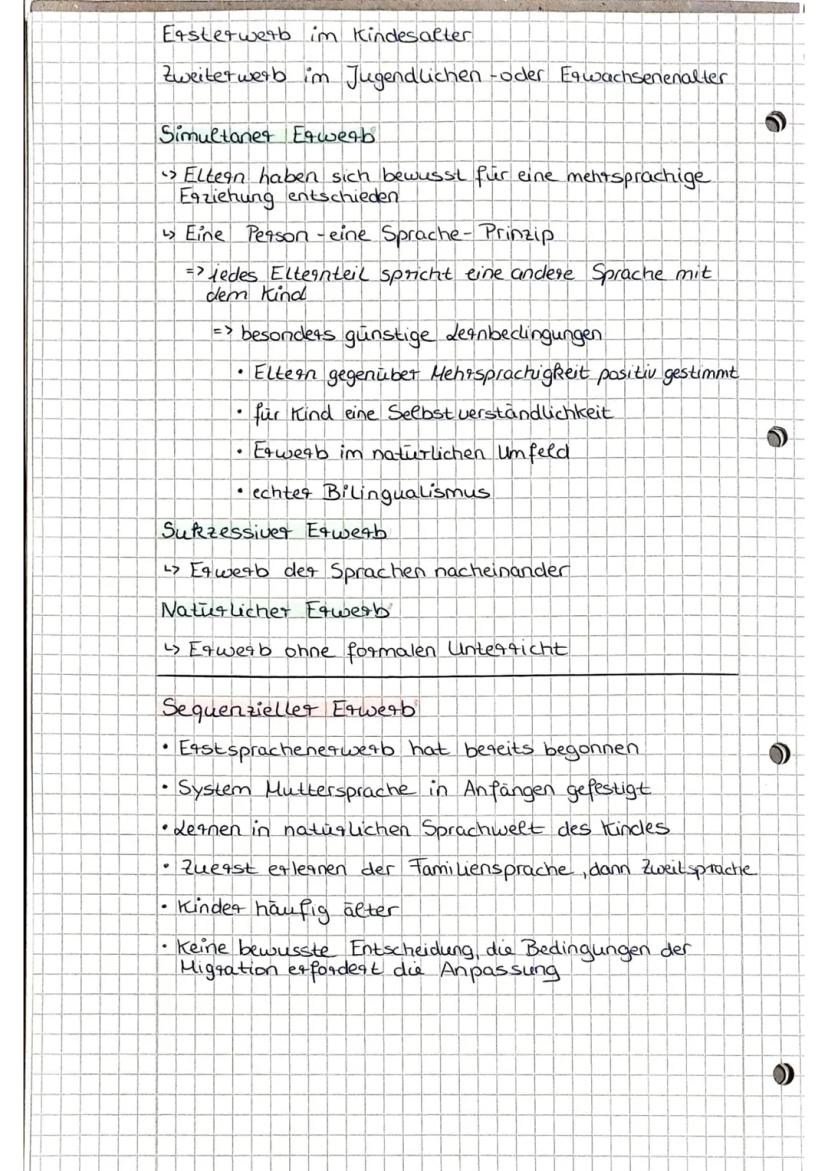 Ersterwerb im Kindesalter
Zweiterwerb im Jugendlichen-oder Erwachsenenalter
Simultaner Erwerb
↳ Eltern haben sich bewusst für eine mehrsprachige
Erziehung entschieden
↳ Eine Person - eine Sprache - Prinzip
=> jedes Elternteil spricht eine andere Sprache mit
dem Kind
=> besonders günstige Lernbedingungen
• Eltern gegenüber Mehrsprachigkeit positiv gestimmt
• für Kind eine Selbstverständlichkeit
• Erwerb im natürlichen Umfeld
• echter Bilingualismus
Sukzessiver Erwerb
↳ Erwerb der Sprachen nacheinander
Natürlicher Erwerb
↳ Erwerb ohne formalen Unterricht
Sequenzieller Erwerb
• Erstsprachenerwerb hat bereits begonnen
• System Muttersprache in Anfängen gefestigt
• Lernen in natürlichen Sprachwelt des Kindes
• Zuerst erlernen der Familiensprache, dann Zweitsprache
• Kinder häufig älter
• Keine bewusste Entscheidung, die Bedingungen der
Migration erfordert die Anpassung